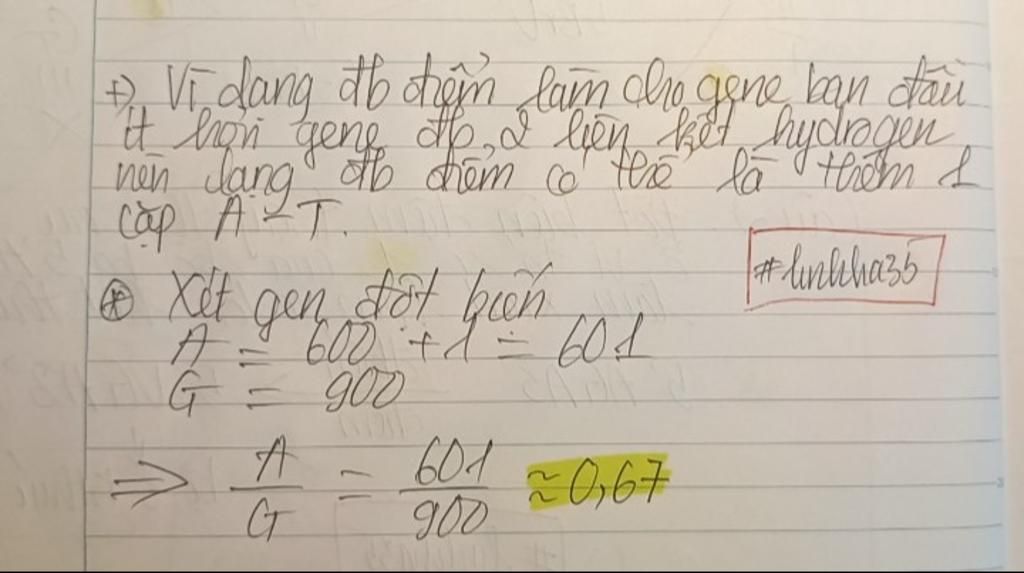 +) Vì dạng đb điểm làm cho gene ban đầu
ít hơn gene đb 2 liên kết hydrogen
nên dạng đb điểm có thể là thêm 1
cặp A - T.
#linhha35
* Xét gen đột biến
A = 600 + 1 = 601
G = 900
=> A/G = 601/900 ≈ 0,67